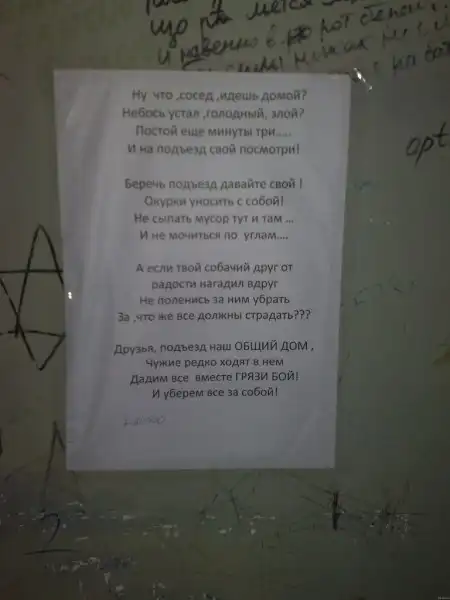 що
и
Ну что ,сосед ,идешь домой?
Небось устал ,голодный, злой?
Постой еще минуты три.....
И на подъезд свой посмотри!
Беречь подъезд давайте свой !
Окурки уносить с собой!
Не сыпать мусор тут и там ...
И не мочиться по углам....
А если твой собачий друг от
радости нагадил вдруг
Не поленись за ним убрать
За ,что же все должны страдать???
Друзья, подъезд наш ОБЩИЙ ДОМ ,
Чужие редко ходят в нем
Дадим все вместе ГРЯЗИ БОЙ!
И уберем все за собой!